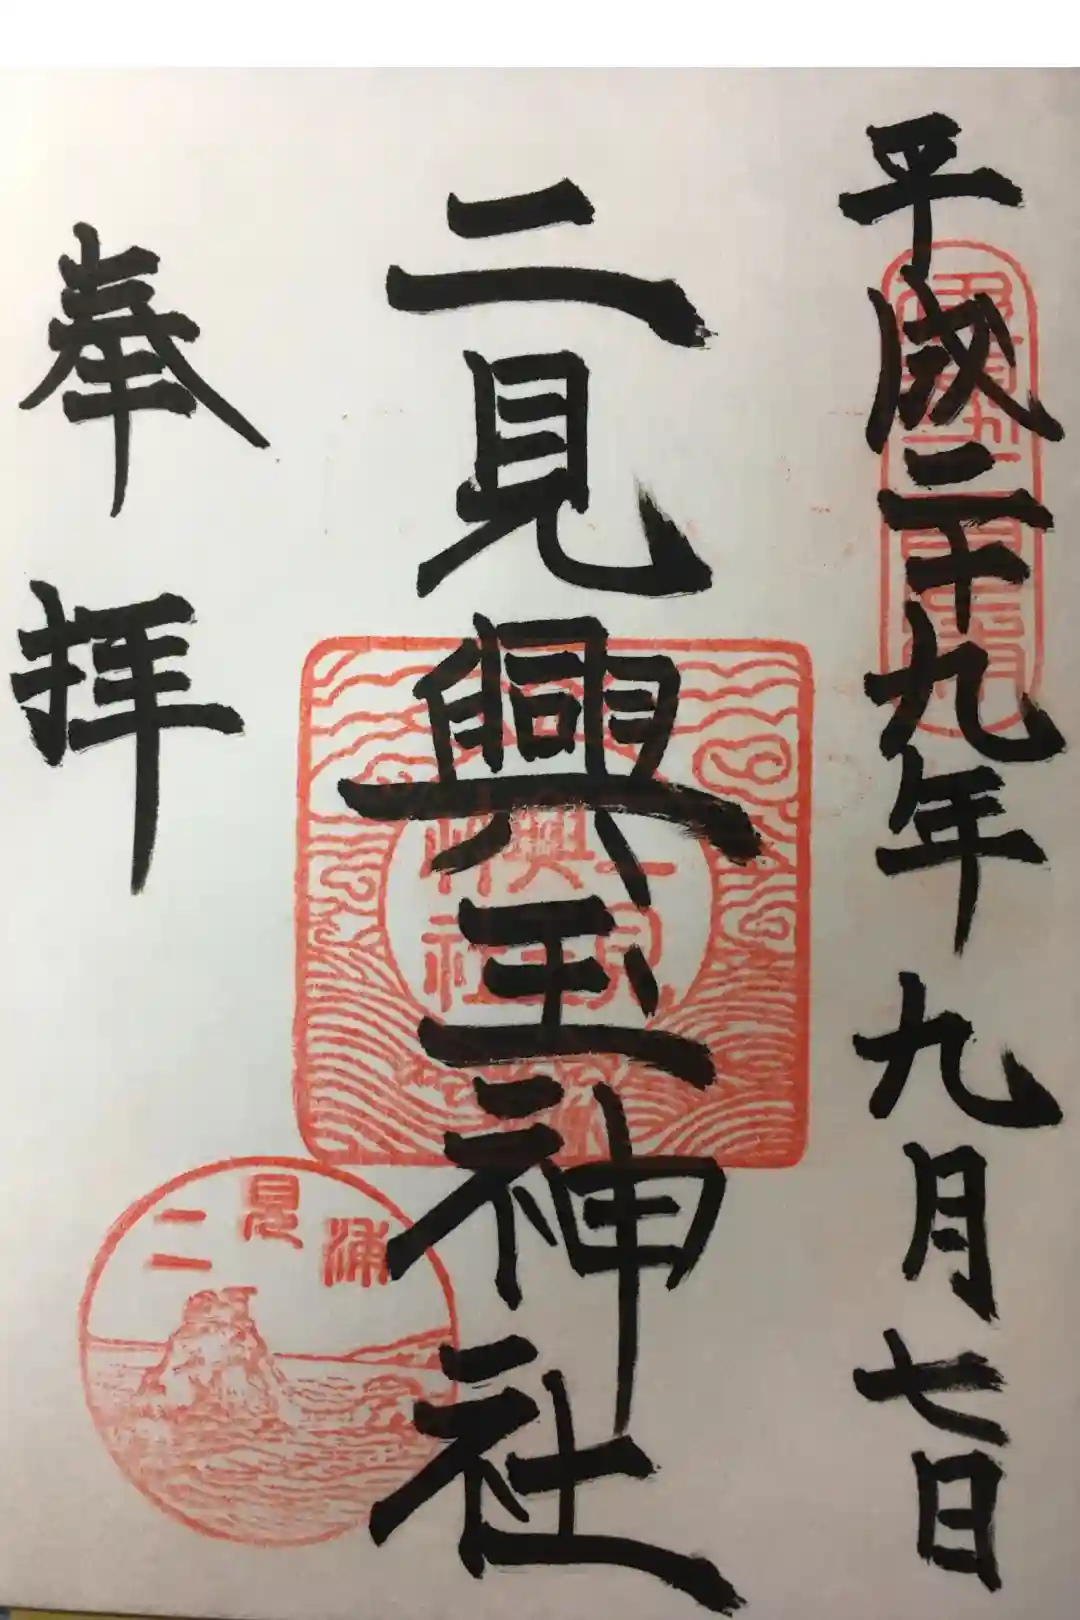 平成二十九年九月七日
二見興玉神社
奉拝
二見興玉神社
二見浦